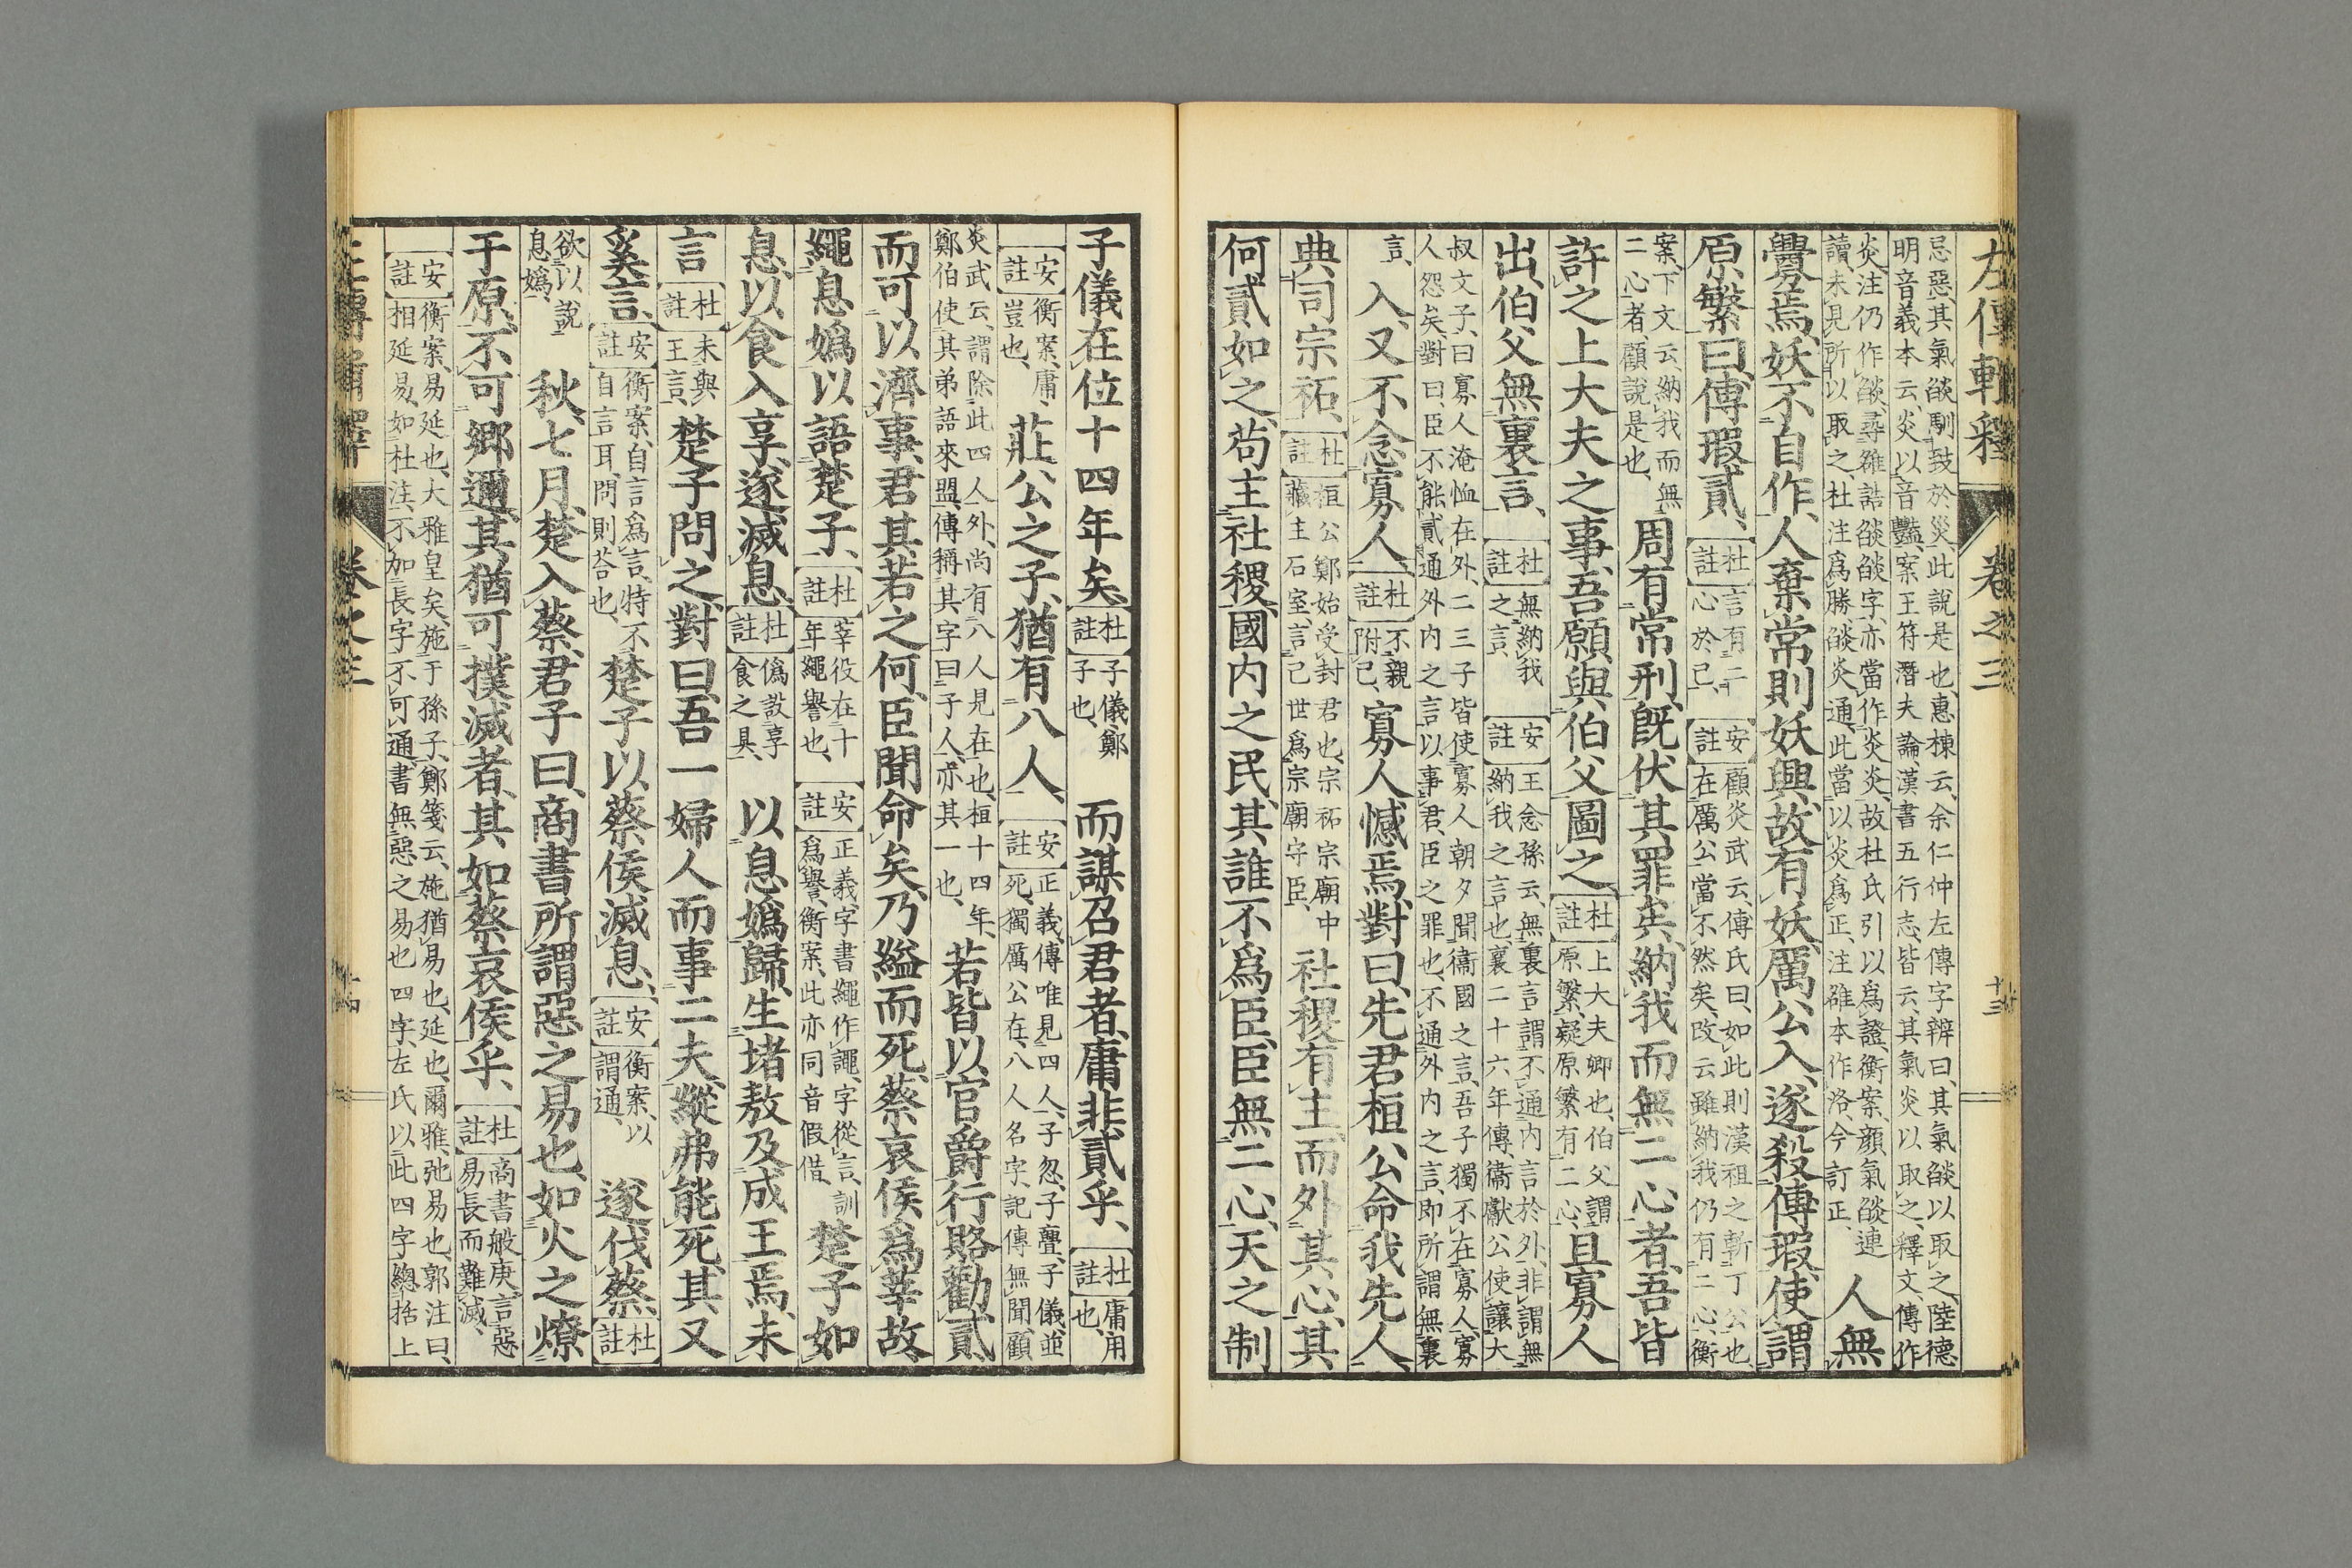 左傳輯釋 卷之三 十三
忌惡、其氣燄馴致於災、此說是也、惠棟云、余仁仲左傳字辨曰、其氣燄以取之、陸德
明音義本云、炎以音豔、案王符潛夫論、漢書五行志、皆云、其氣炎以取之、釋文、傳作
炎、注仍作燄、尋雒誥燄燄字、亦當作炎炎、故杜氏引以爲證、衡案、顏氣燄連
讀、未見所以取之、杜注爲勝、燄炎通、此當以炎爲正、注雒本作洛、今訂正、 人無
釁焉、妖不自作、人棄常則妖興、故有妖、厲公入、遂殺傅瑕、使謂
原繁曰、傅瑕貳、【杜註】言有二心於己、【安註】顧炎武云、傅氏曰、如此則漢祖之斬丁公也、在厲公當不然矣、改云雖納我仍有二心、衡
案、下文云、納我而無二心者、顧說是也、 周有常刑、既伏其罪矣、納我而無二心者、吾皆
許之上大夫之事、吾願與伯父圖之、【杜註】上大夫卿也、伯父謂原繁、疑原繁有二心、 且寡人
出、伯父無裏言、【杜註】無納我之言、【安註】王念孫云、無裏言、謂不通內言於外、非謂無納我之言也、襄二十六年傳、衞獻公使讓大
叔文子、曰寡人淹恤在外、二三子皆使寡人朝夕聞衞國之言、吾子獨不在寡人、寡
人怨矣、對曰、臣不能貳通外內之言以事君、臣之罪也、不通外內之言、即所謂無裏
言、 入、又不念寡人、【杜註】不親附己、 寡人憾焉、對曰、先君桓公命我先人
典司宗祏、【杜註】桓公鄭始受封君也、宗祏宗廟中藏主石室、言己世爲宗廟守臣、 社稷有主、而外其心、其
何貳如之、苟主社稷、國內之民、其誰不爲臣、臣無二心、天之制
子儀在位十四年矣、【杜註】子儀、鄭子也、 而謀召君者、庸非貳乎、【杜註】庸用也、
【安註】衡案、庸豈也、 莊公之子、猶有八人、【安註】正義、傳唯見四人、子忽、子亹、子儀並死、獨厲公在、八人名字、記傳無聞、顧
炎武云、謂除此四人外、尚有八人見在也、桓十四年、
鄭伯使其弟語來盟、傳稱其字曰子人、亦其一也、 若皆以官爵行賂勸貳、
而可以濟事、君其若之何、臣聞命矣、乃縊而死、蔡哀侯爲莘故、
繩息嬀以語楚子、【杜註】莘役在十年、繩譽也、【安註】正義、字書繩作譝、字從言、訓爲譽、衡案、此亦同音假借、 楚子如
息、以食入享、遂滅息、【杜註】僞設享食之具、 以息嬀歸、生堵敖及成王焉、未
言、【杜註】未與王言、 楚子問之、對曰、吾一婦人而事二夫、縱弗能死、其又
奚言、【安註】衡案、自言爲言、特不自言耳、問則荅也、 楚子以蔡侯滅息、【安註】衡案、以謂通、 遂伐蔡、【杜註】
欲以說息嬀、 秋、七月、楚入蔡、君子曰、商書所謂惡之易也、如火之燎
于原、不可鄉邇、其猶可撲滅者、其如蔡哀侯乎、【杜註】商書般庚、言惡易長而難滅、
【安註】衡案、易延也、大雅皇矣、施于孫子、鄭箋云、施猶易也、延也、爾雅、弛易也、郭注曰、
相延易、如杜注、不加長字不可通、書無惡之易也四字、左氏以此四字總括上
左傳輯釋 卷之三 十四